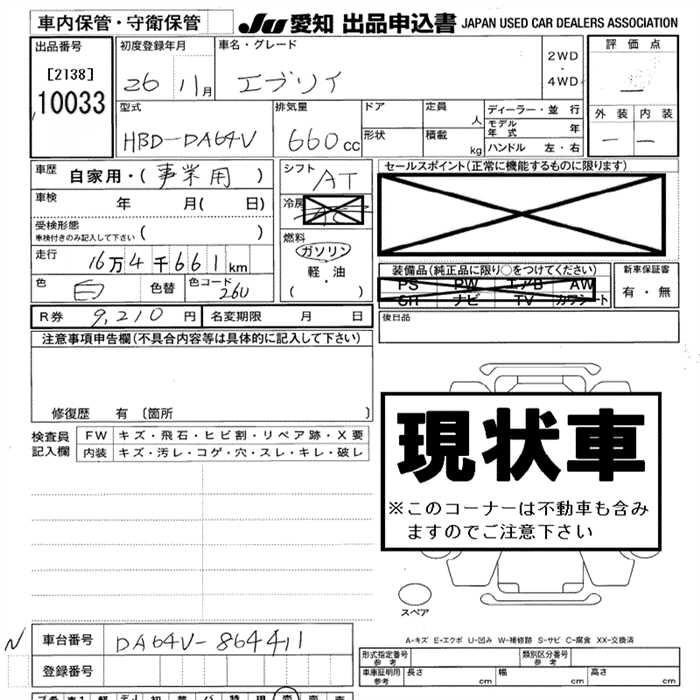 車内保管・守衛保管
JU 愛知 出品申込書 JAPAN USED CAR DEALERS ASSOCIATION
出品番号
[2138]
10033
初度登録年月
26 11月
車名・グレード
エブリイ
2WD
・
4WD
評価点
外装 内装
型式
HBD-DA64V
排気量
660cc
ドア
形状
定員 人
積載 kg
ディーラー・並行
モデル年式 年
ハンドル 左・右
車歴
自家用・(事業用)
車検 年 月( 日)
受検形態
車検付きのみ記入して下さい ( )
走行
16万4千661km
色 白 色替 色コード 26U
シフト AT
冷房 AC
燃料
ガソリン
軽・油
( ・ )
セールスポイント(正常に機能するものに限ります)
装備品(純正品に限り○をつけてください)
PS PW エアB AW
SR ナビ TV カワシート
新車保証書
有・無
後日品
R券 9,210円 名変期限 月 日
注意事項申告欄(不具合内容等は具体的に記入して下さい)
修復歴 有〔箇所 〕
検査員
記入欄
FW キズ・飛石・ヒビ割・リペア跡・X要
内装 キズ・汚レ・コゲ・穴・スレ・キレ・破レ
現状車
※このコーナーは不動車も含み
ますのでご注意下さい
スペア
A-キズ E-エクボ U-凹み W-補修跡 S-サビ C-腐食 XX-交換済
N
車台番号 DA64V-864411
登録番号
形式指定番号
参考
類別区分番号
参考
車庫証明用
参考
長さ cm 幅 cm 高さ cm